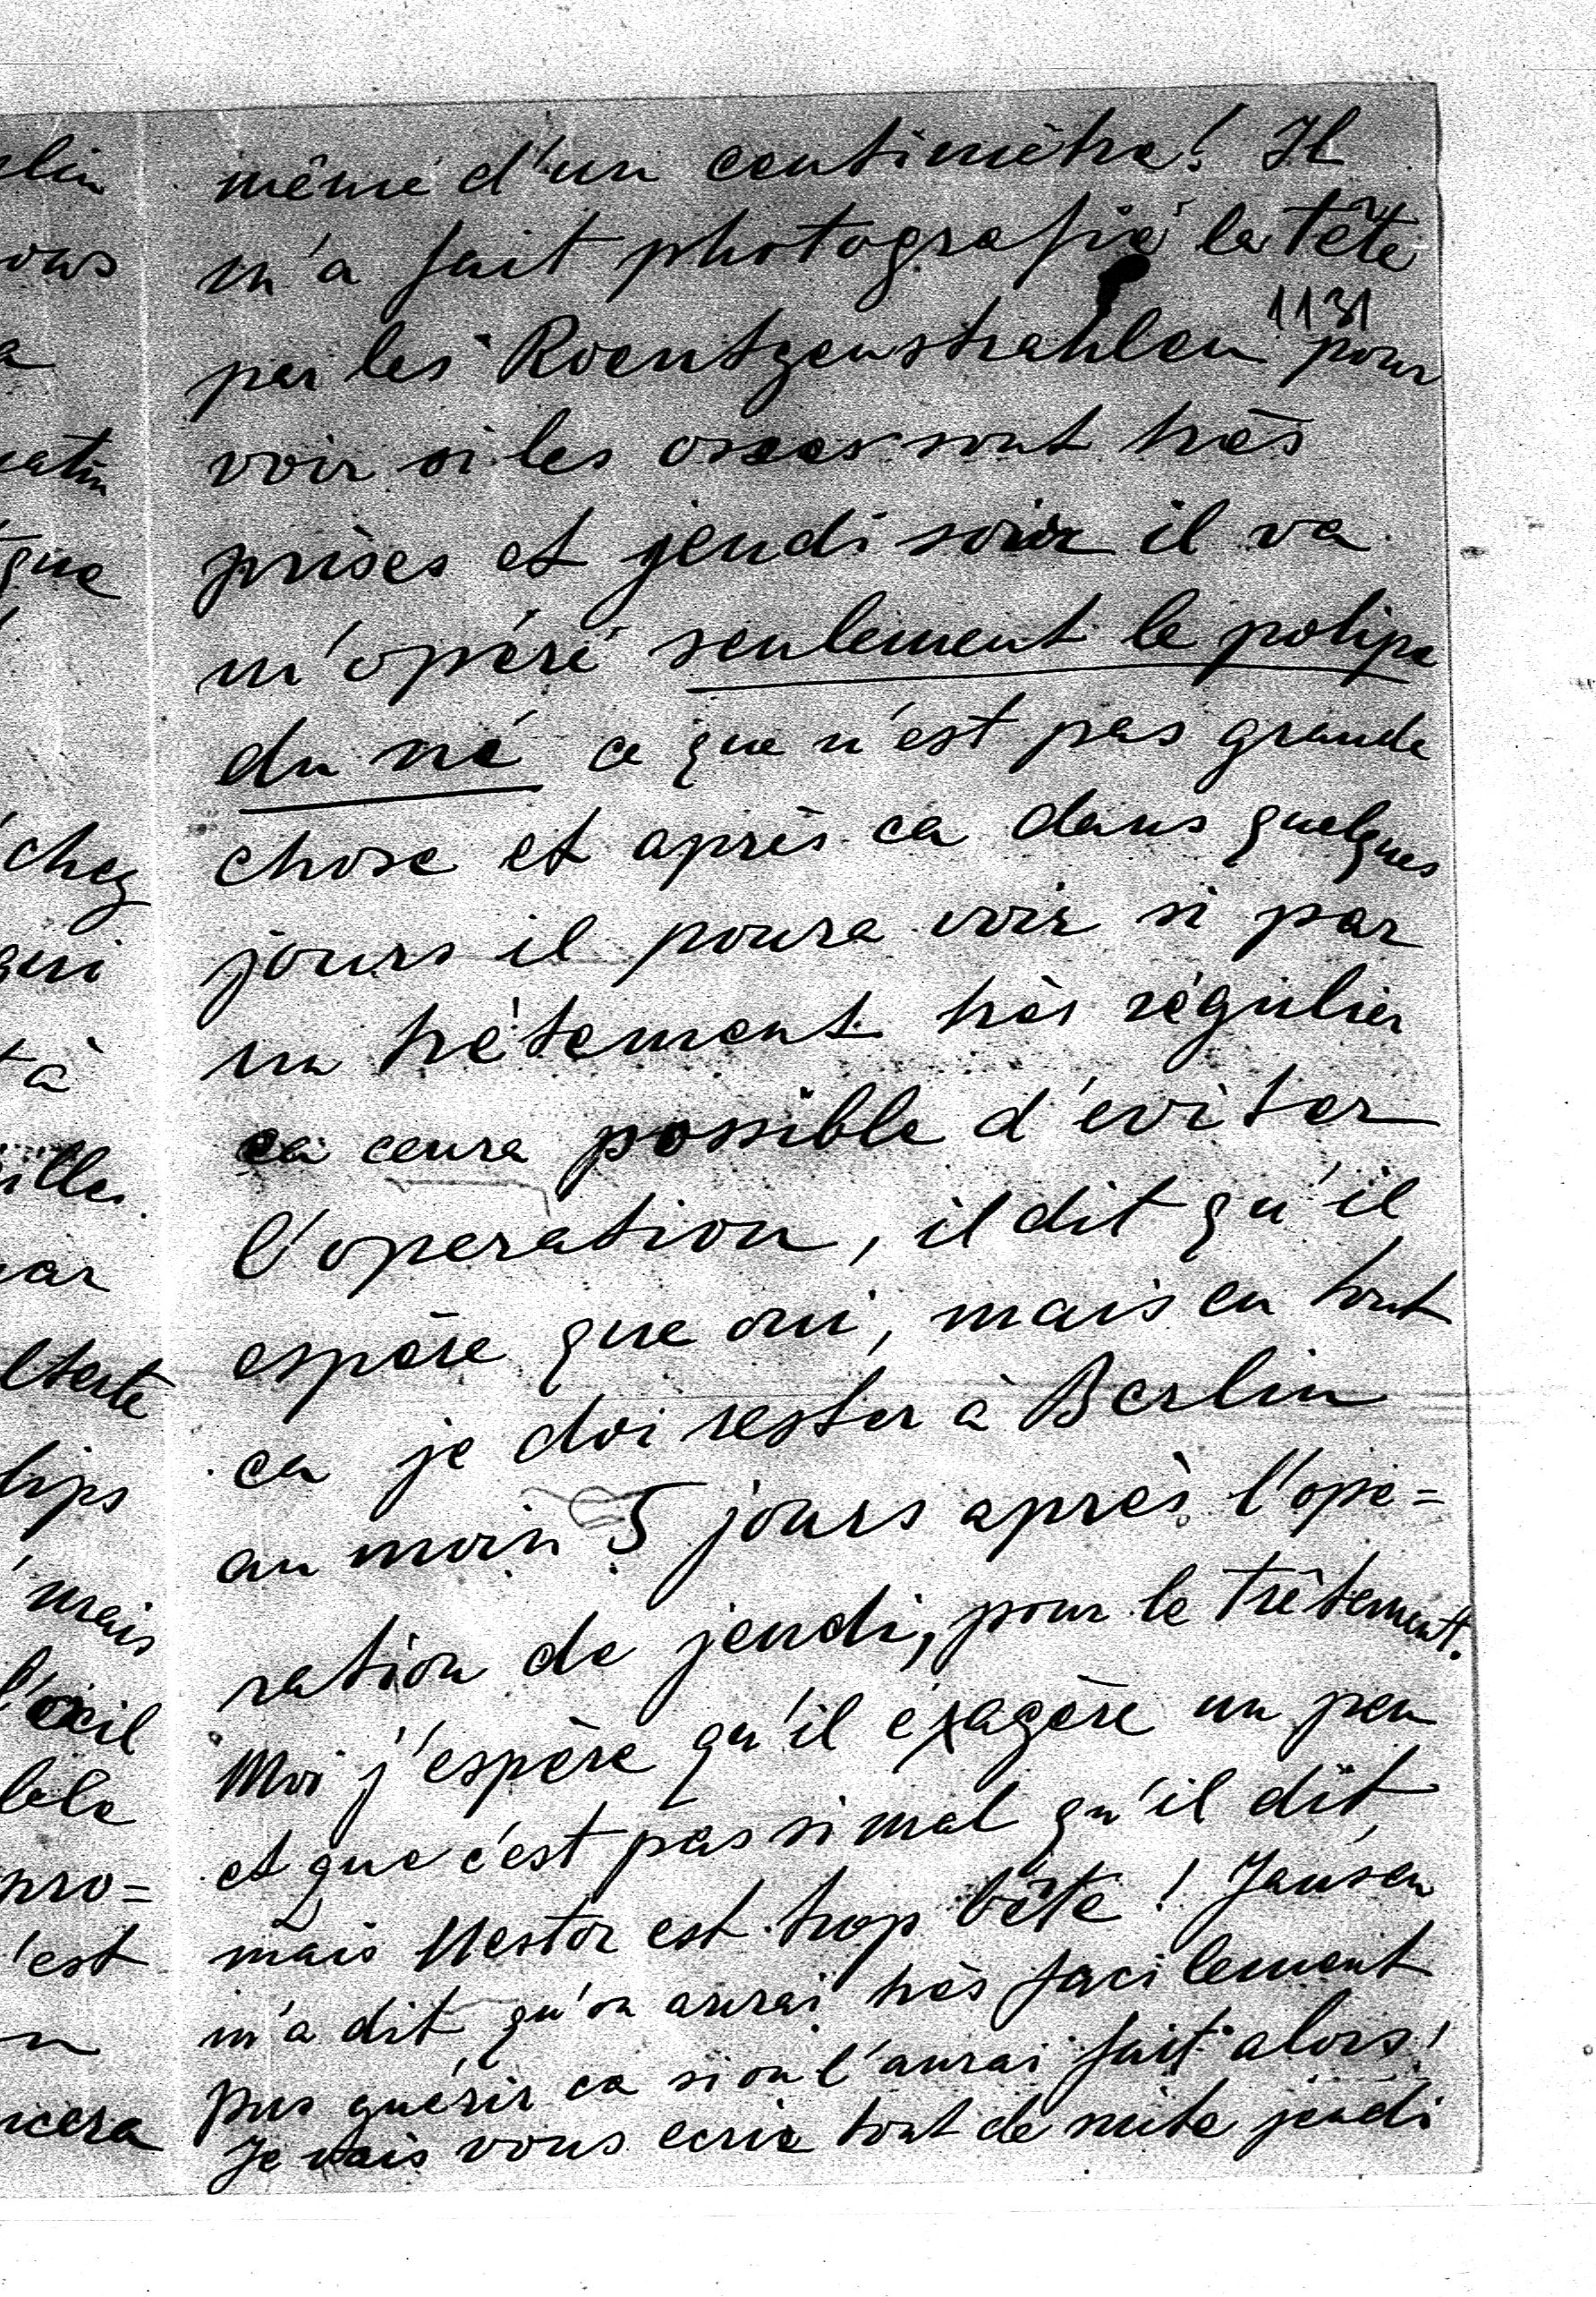 lin
ous
a
atin
que
chez
qui
t à
ille
ar
lips
mais
l'œil
pro=
'est
n
cera
même d'un centimètre! Il
m'a fait photografié la tête
1131
par les Roentzenstrahlen pour
voir si les osses sont très
prises et jeudi soir il va
m'opéré seulement le polipe
du né ce que n'est pas grande
chose et après ca dans quelques
jours il poura voir si par
un trètement très régulier
ca cera possible d'eviter
l'operation, il dit qu'il
espère que oui, mais en tout
ca je doi rester à Berlin
au moin 5 jours après l'ope=
ration de jeudi, pour le trêtement.
Moi j'espère qu'il éxagère un peu
et que c'est pas si mal qu'il dit,
mais Nestor est trop bête! Jansen
m'a dit qu'on aurai très facilement
pus guérir ca si on l'aurai fait alors!
Je vais vous ecrir tout de suite jeudi